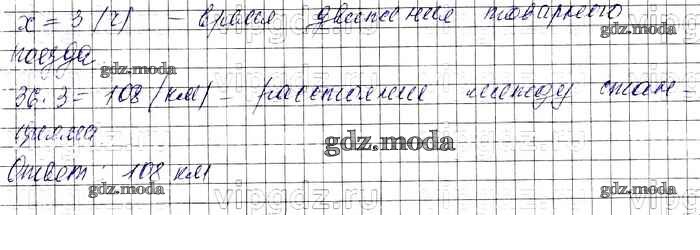 x = 3 (ч) – время движения товарного
поезда
gdz.moda
gdz.moda
36 · 3 = 108 (км) – расстояние между стан-
циями
gdz.moda
Ответ: 108 км
gdz.moda
gdz.moda
vipgdz.ru
vipgdz.ru